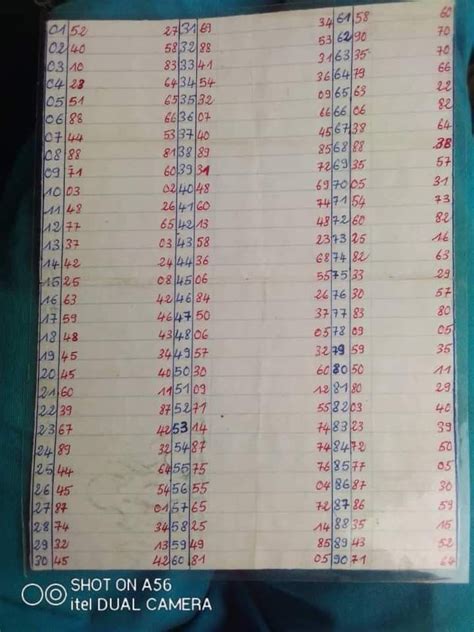 01 52 27 31 69 34 61 58 60
02 40 58 32 88 53 62 90 70
03 10 83 33 41 31 63 35 70
04 28 64 34 54 36 64 79 66
05 51 65 35 32 09 65 63 22
06 86 66 36 07 66 66 06 82
07 44 53 37 40 45 67 38 64
08 88 81 38 89 85 68 88 38
09 71 60 39 31 72 69 35 57
10 03 02 40 48 69 70 05 31
11 48 26 41 60 74 71 54 73
12 77 65 42 13 48 72 60 82
13 37 03 43 58 23 73 25 16
14 42 24 44 36 68 74 82 63
15 25 08 45 06 55 75 33 29
16 63 42 46 84 26 76 30 57
17 59 46 47 50 37 77 83 80
18 48 43 48 06 05 78 09 05
19 45 34 49 57 32 79 59 35
20 45 40 50 30 60 80 50 11
21 60 11 51 09 12 81 80 29
22 39 87 52 71 55 82 03 40
23 67 42 53 14 74 83 23 39
24 89 32 54 87 74 84 72 50
25 44 64 55 75 76 85 77 05
26 45 54 56 55 04 86 87 30
27 87 01 57 65 72 87 86 59
28 74 34 58 25 14 88 35 15
29 32 13 59 49 85 89 43 52
30 45 42 60 81 05 90 71 64
SHOT ON A56
itel DUAL CAMERA